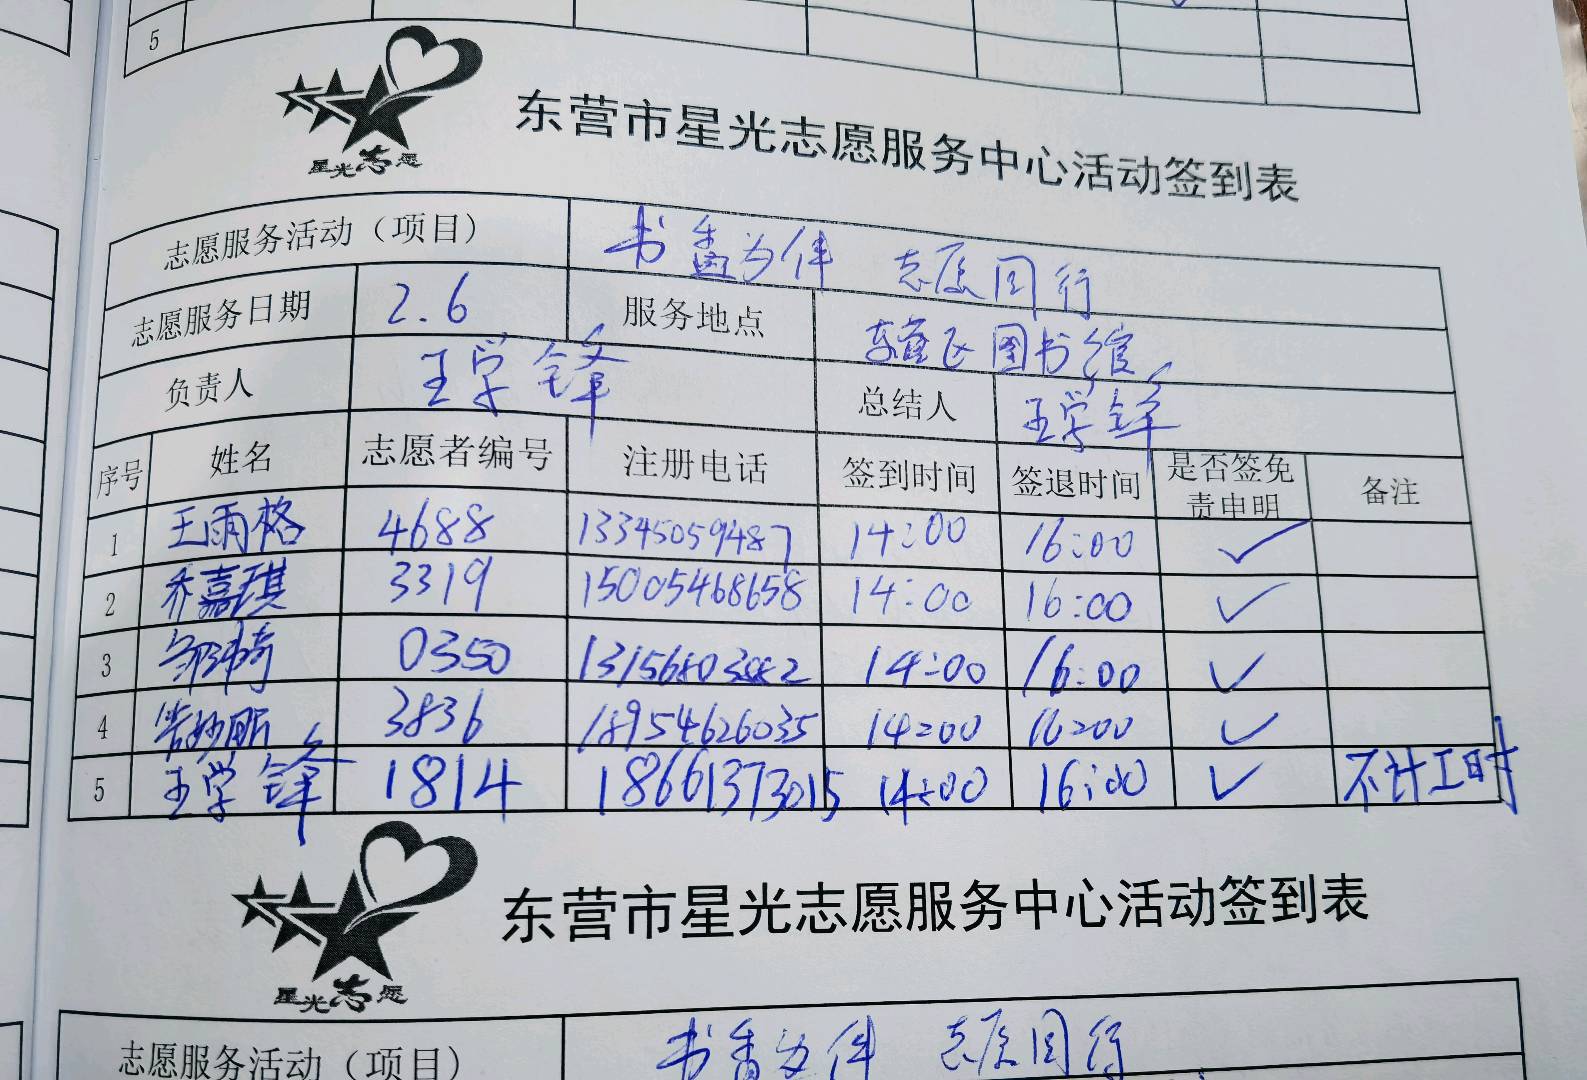 5
星光志愿
东营市星光志愿服务中心活动签到表
志愿服务活动（项目） 书香为伴 志愿同行
志愿服务日期 2.6 服务地点 东营区图书馆
负责人 王学锋 总结人 王学锋
序号 姓名 志愿者编号 注册电话 签到时间 签退时间 是否签免责申明 备注
1 王雨格 4688 13345059487 14:00 16:00 ✓
2 乔嘉琪 3319 15005468658 14:00 16:00 ✓
3 0350 14:00 16:00 ✓
4 3836 18954626035 14:00 16:00 ✓
5 王学锋 1814 18661373015 14:00 16:00 ✓ 不计工时
星光志愿
东营市星光志愿服务中心活动签到表
志愿服务活动（项目） 书香为伴 志愿同行